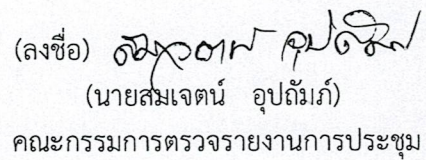 (ลงชื่อ) สมเจตน์ อุปถัมภ์
(นายสมเจตน์ อุปถัมภ์)
คณะกรรมการตรวจรายงานการประชุม